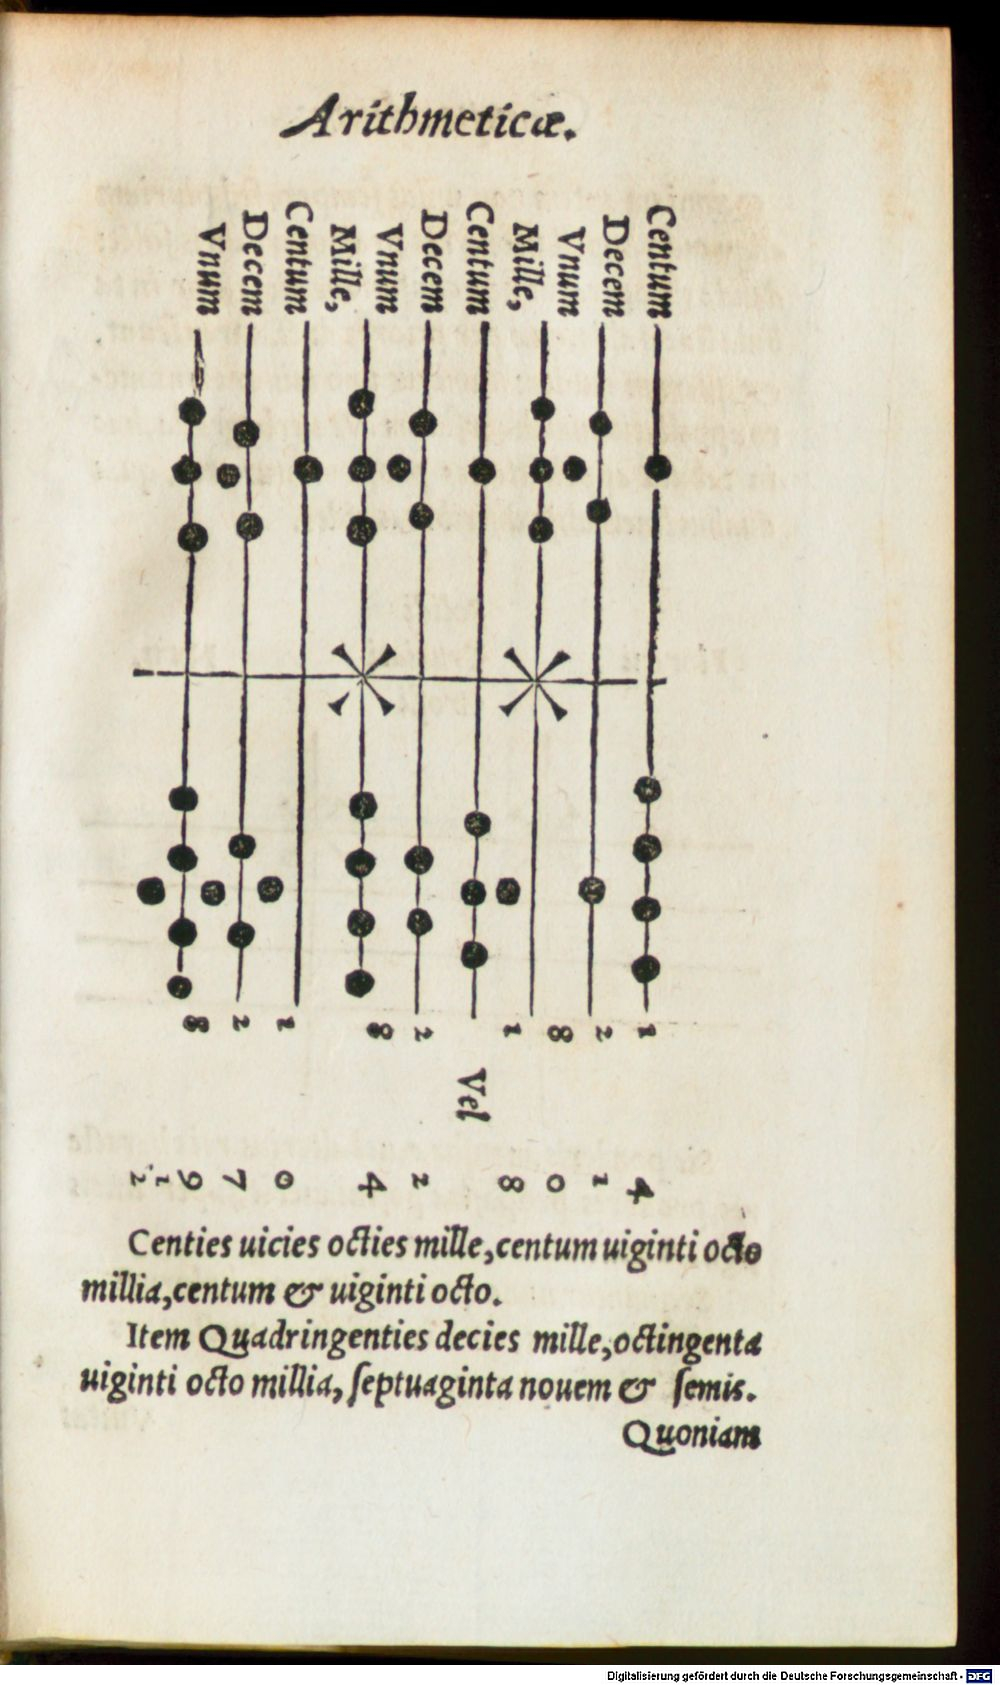 Arithmeticæ.
Centum
Decem
Vnum
Mille,
Centum
Decem
Vnum
Mille,
Centum
Decem
Vnum
1 2 8 1 2 8 1 2 8
Vel
4 1 0 8 2 4 0 7 9 1/2
Centies uicies octies mille, centum uiginti octo
millia, centum & uiginti octo.
Item Quadringenties decies mille, octingenta
uiginti octo millia, ſeptuaginta nouem & ſemis.
Quoniam
Digitalisierung gefördert durch die Deutsche Forschungsgemeinschaft - DFG